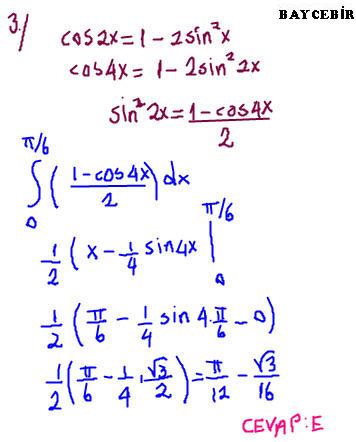 BAYCEBİR
3./ cos2x = 1 - 2sin²x
cos4x = 1 - 2sin²2x
sin²2x = (1-cos4x)/2
∫₀^(π/6) ((1-cos4x)/2) dx
1/2 (x - 1/4 sin4x |₀^(π/6)
1/2 (π/6 - 1/4 sin 4.π/6 - 0)
1/2 (π/6 - 1/4 . √3/2) = π/12 - √3/16
CEVAP:E